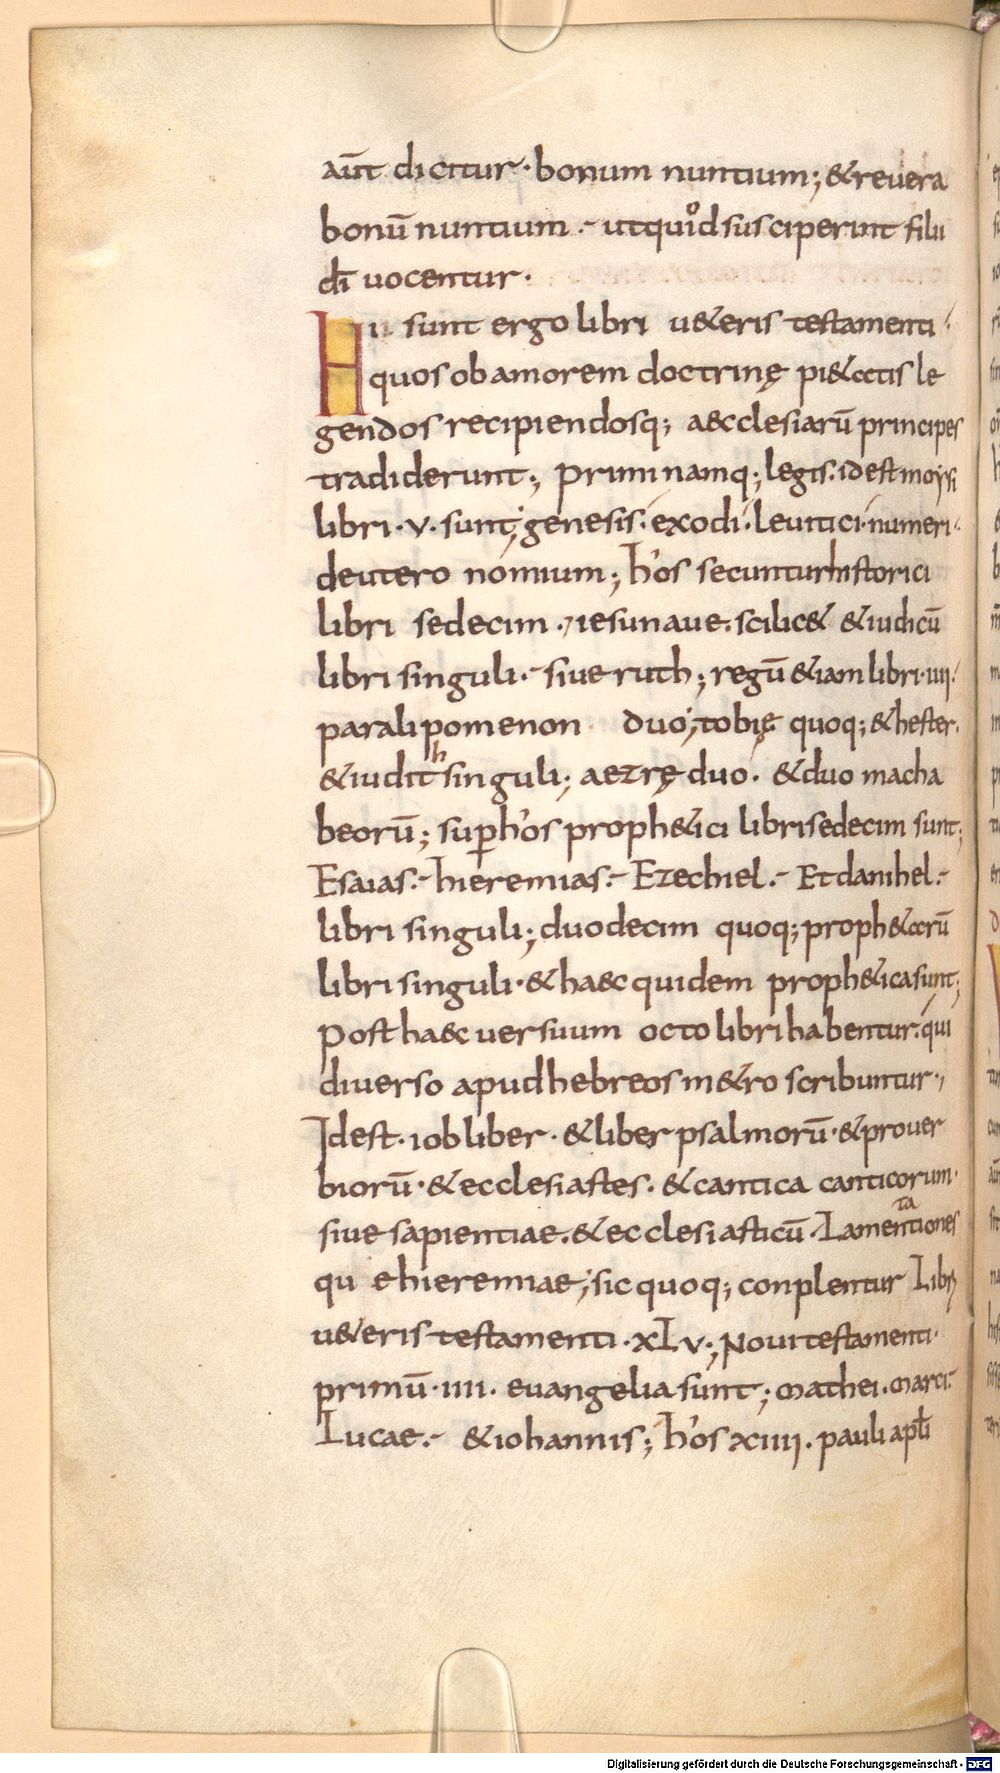 aūt dicitur· bonum nuntium; &revera
bonū nuntium .- utquiͦd susciperint filii
dī vocentur·
Hii sunt ergo libri u&eris testamenti·
quos ob amorem doctrinę pi&actis le
gendos recipiendosq; aecclesiarū principes
tradiderunt; primi namq; legis. id est moysi
libri· v· sunt; genesis· exodi· leuitici· numeri·
deutero nomium; hos secuntur historici
libri sedecim ·, iesu naue. scilic& &iudicū
libri singuli·- siue ruth; regū &iam libri· iiii·
paralipomenon duo; tobię quoq; &hester.
&iudith singuli; aezrę duo. &duo macha
beorū; sup hos proph&ici libri sedecim sunt;
Esaias.- hieremias.- Ezechiel.- Et danihel.-
libri singuli; duodecim quoq; proph&arū
libri singuli· & haec quidem proph&ica sunt;
Post haec versuum octo libri habentur. qui
diverso apud hebreos m&ro scribuntur·,
Idest· iob liber· &liber psalmorū· &prouer
biorū· &ecclesiastes. &cantica canticorum·
siue sapientiae. &ecclesiasticū· Lamentationes
qu e hieremiae; sic quoq; conplentur Libri
u&eris testamenti· xLv; Noui testamenti·
primū· iiii. evangelia sunt; mathei. marci.
Lucae.- &iohannis; hos xiiii. pauli apłi
Digitalisierung gefördert durch die Deutsche Forschungsgemeinschaft - DFG